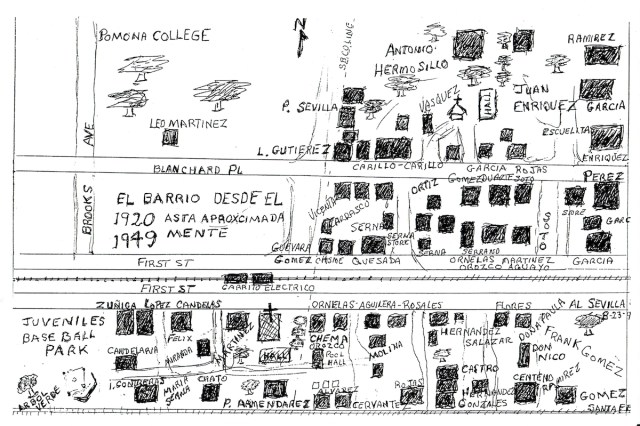 POMONA COLLEGE
N
S.B.CO. LINE
ANTONIO
HERMOSILLO
RAMIREZ
P. SEVILLA
VASQUEZ
HALL
JUAN
ENRIQUEZ
GARCIA
LEO MARTINEZ
ESCUELITA
L. GUTIEREZ
ENRIQUEZ
AVE
BROOKS
BLANCHARD PL
CARILLO-CARILLO
GARCIA ROJAS
GOMEZ DUARTE SOTO
PEREZ
ORTIZ
EL BARRIO DESDE EL
1920 ASTA APROXIMADA
1949 MENTE
CARRASCO
SERNA
STORE
GARC
SERNA
STORE
SERNA
SERRANO
GUEVARA
FIRST ST
GOMEZ COSME QUESADA
ORNELAS MARTINEZ
OROZCO AGUAYO
GARCIA
FIRST ST
CARRITO ELECTRICO
ZUÑIGA LOPEZ CANDELAS
ORNELAS-AGUILERA-ROSALES
FLORES
AL SEVILLA
JUVENILES
BASE BALL
PARK
FELIX
MARTINEZ
HALL
CHEMA
OROZCO
POOL
HALL
MOLINA
HERNANDEZ
SALAZAR
DOÑA PAULA
DON
NICO
FRANK
GOMEZ
CANDELARIA
MIRANDA
CASTRO
ARBOL
VERDE
I. CONTRERAS
MARIA
SERNA
CHATO
P. ARMENDAREZ
ALVAREZ
CERVANTEZ
ROJAS
HERNANDEZ
GONZALES
CENTENO
RAMIREZ
GOMEZ
SANTA FE